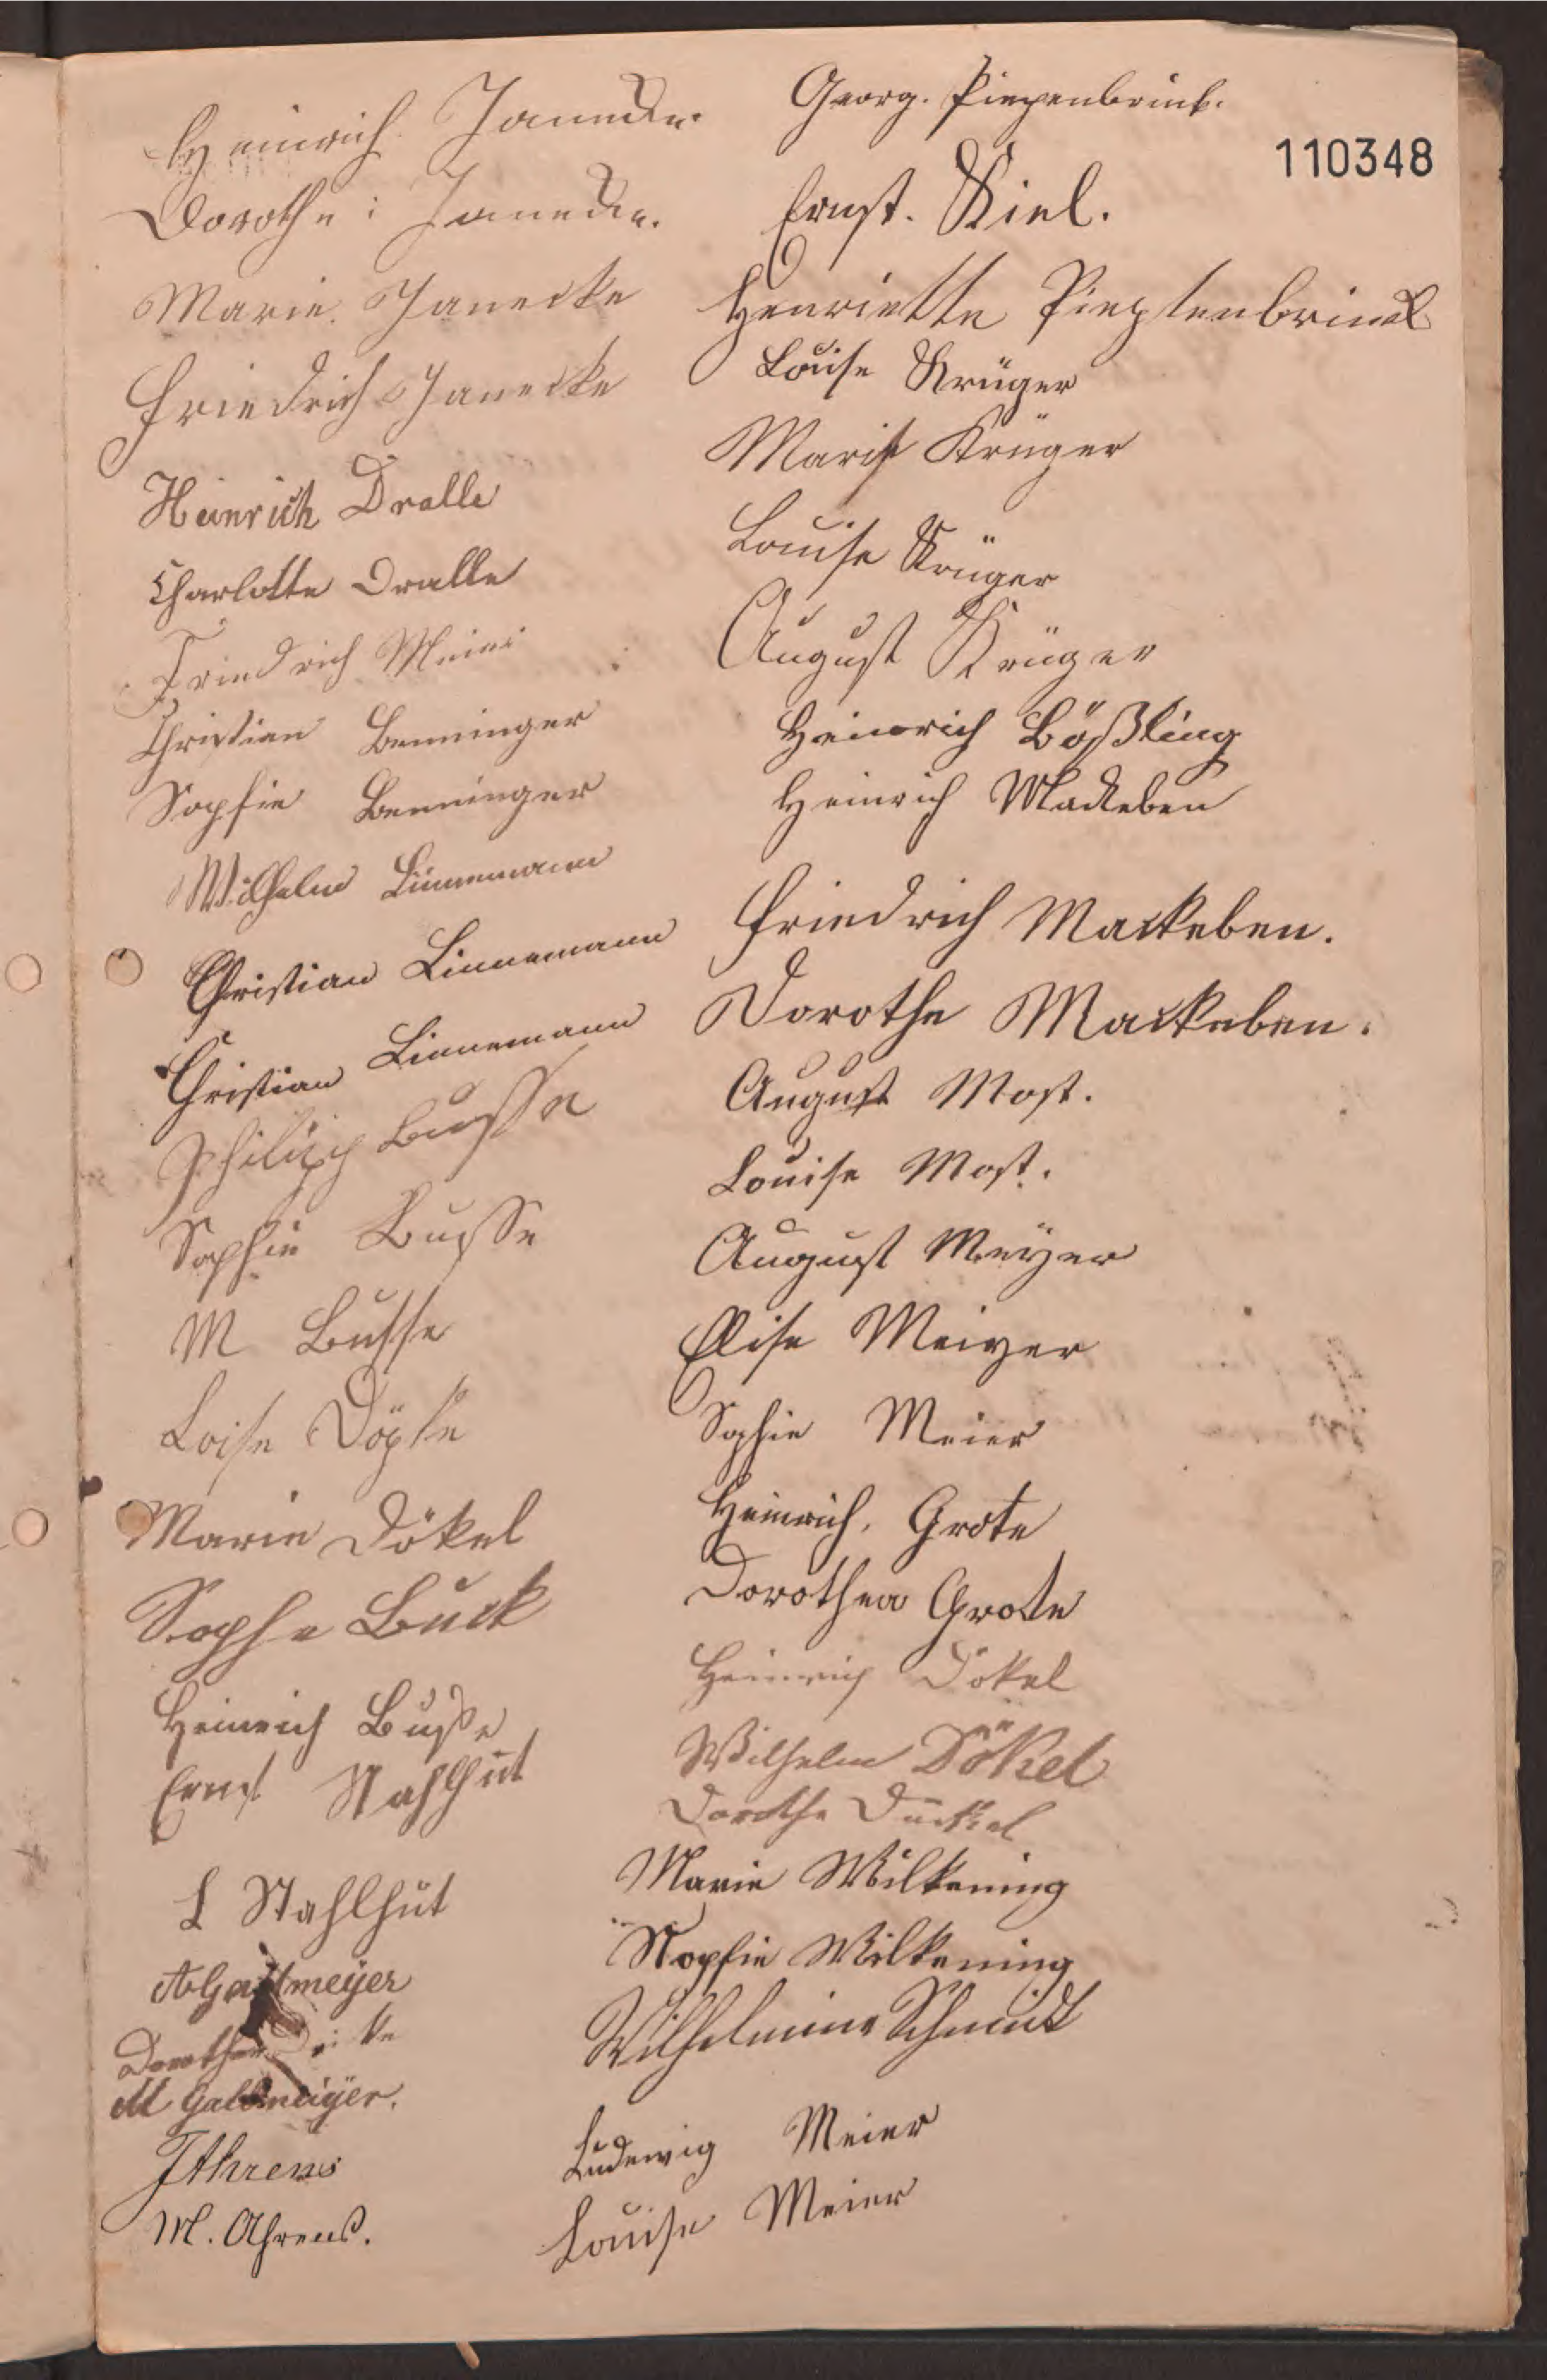 Heinrich Janecke.
Dorothe Janecke.
Marie. Janecke
Friedrich Janecke
Heinrich Dralle
Charlotte Dralle
Friedrich Meier
Christian Benninger
Sopfie Benninger
Wilhelm Linnemann
Christian Linnemann
Christian Linnemann
Philipp Busse
Sophie Busse
M Busse
Loise Döpke
Marie Dökel
Sophe Buck
Heinrich Buße
Ernst Stahlhut
L Stahlhut
A Gallmeyer
Dorothea
M Gallmeiÿer.
J Ahrens
M. Ahrens.
Georg. Piepenbrink.
110348
Ernst. Kiel.
Henriette Pieptenbrinck
Louise Krüger
Marie Krüger
Louise Krüger
August Krüger
Heinrich Bößling
Heinrich Mackeben
Friedrich Mackeben.
Dorothe Mackeben.
August Most.
Louise Most.
August Meÿer
Elise Meiyer
Sophie Meier
Heinrich. Grote
Dorothea Grote
Heinrich Dökel
Wilhelm Dökel
Dorothe Dückel
Marie Wilkening
Sopfie Wilkening
Wilhelmine Schmidt
Ludewig Meier
Louise Meier